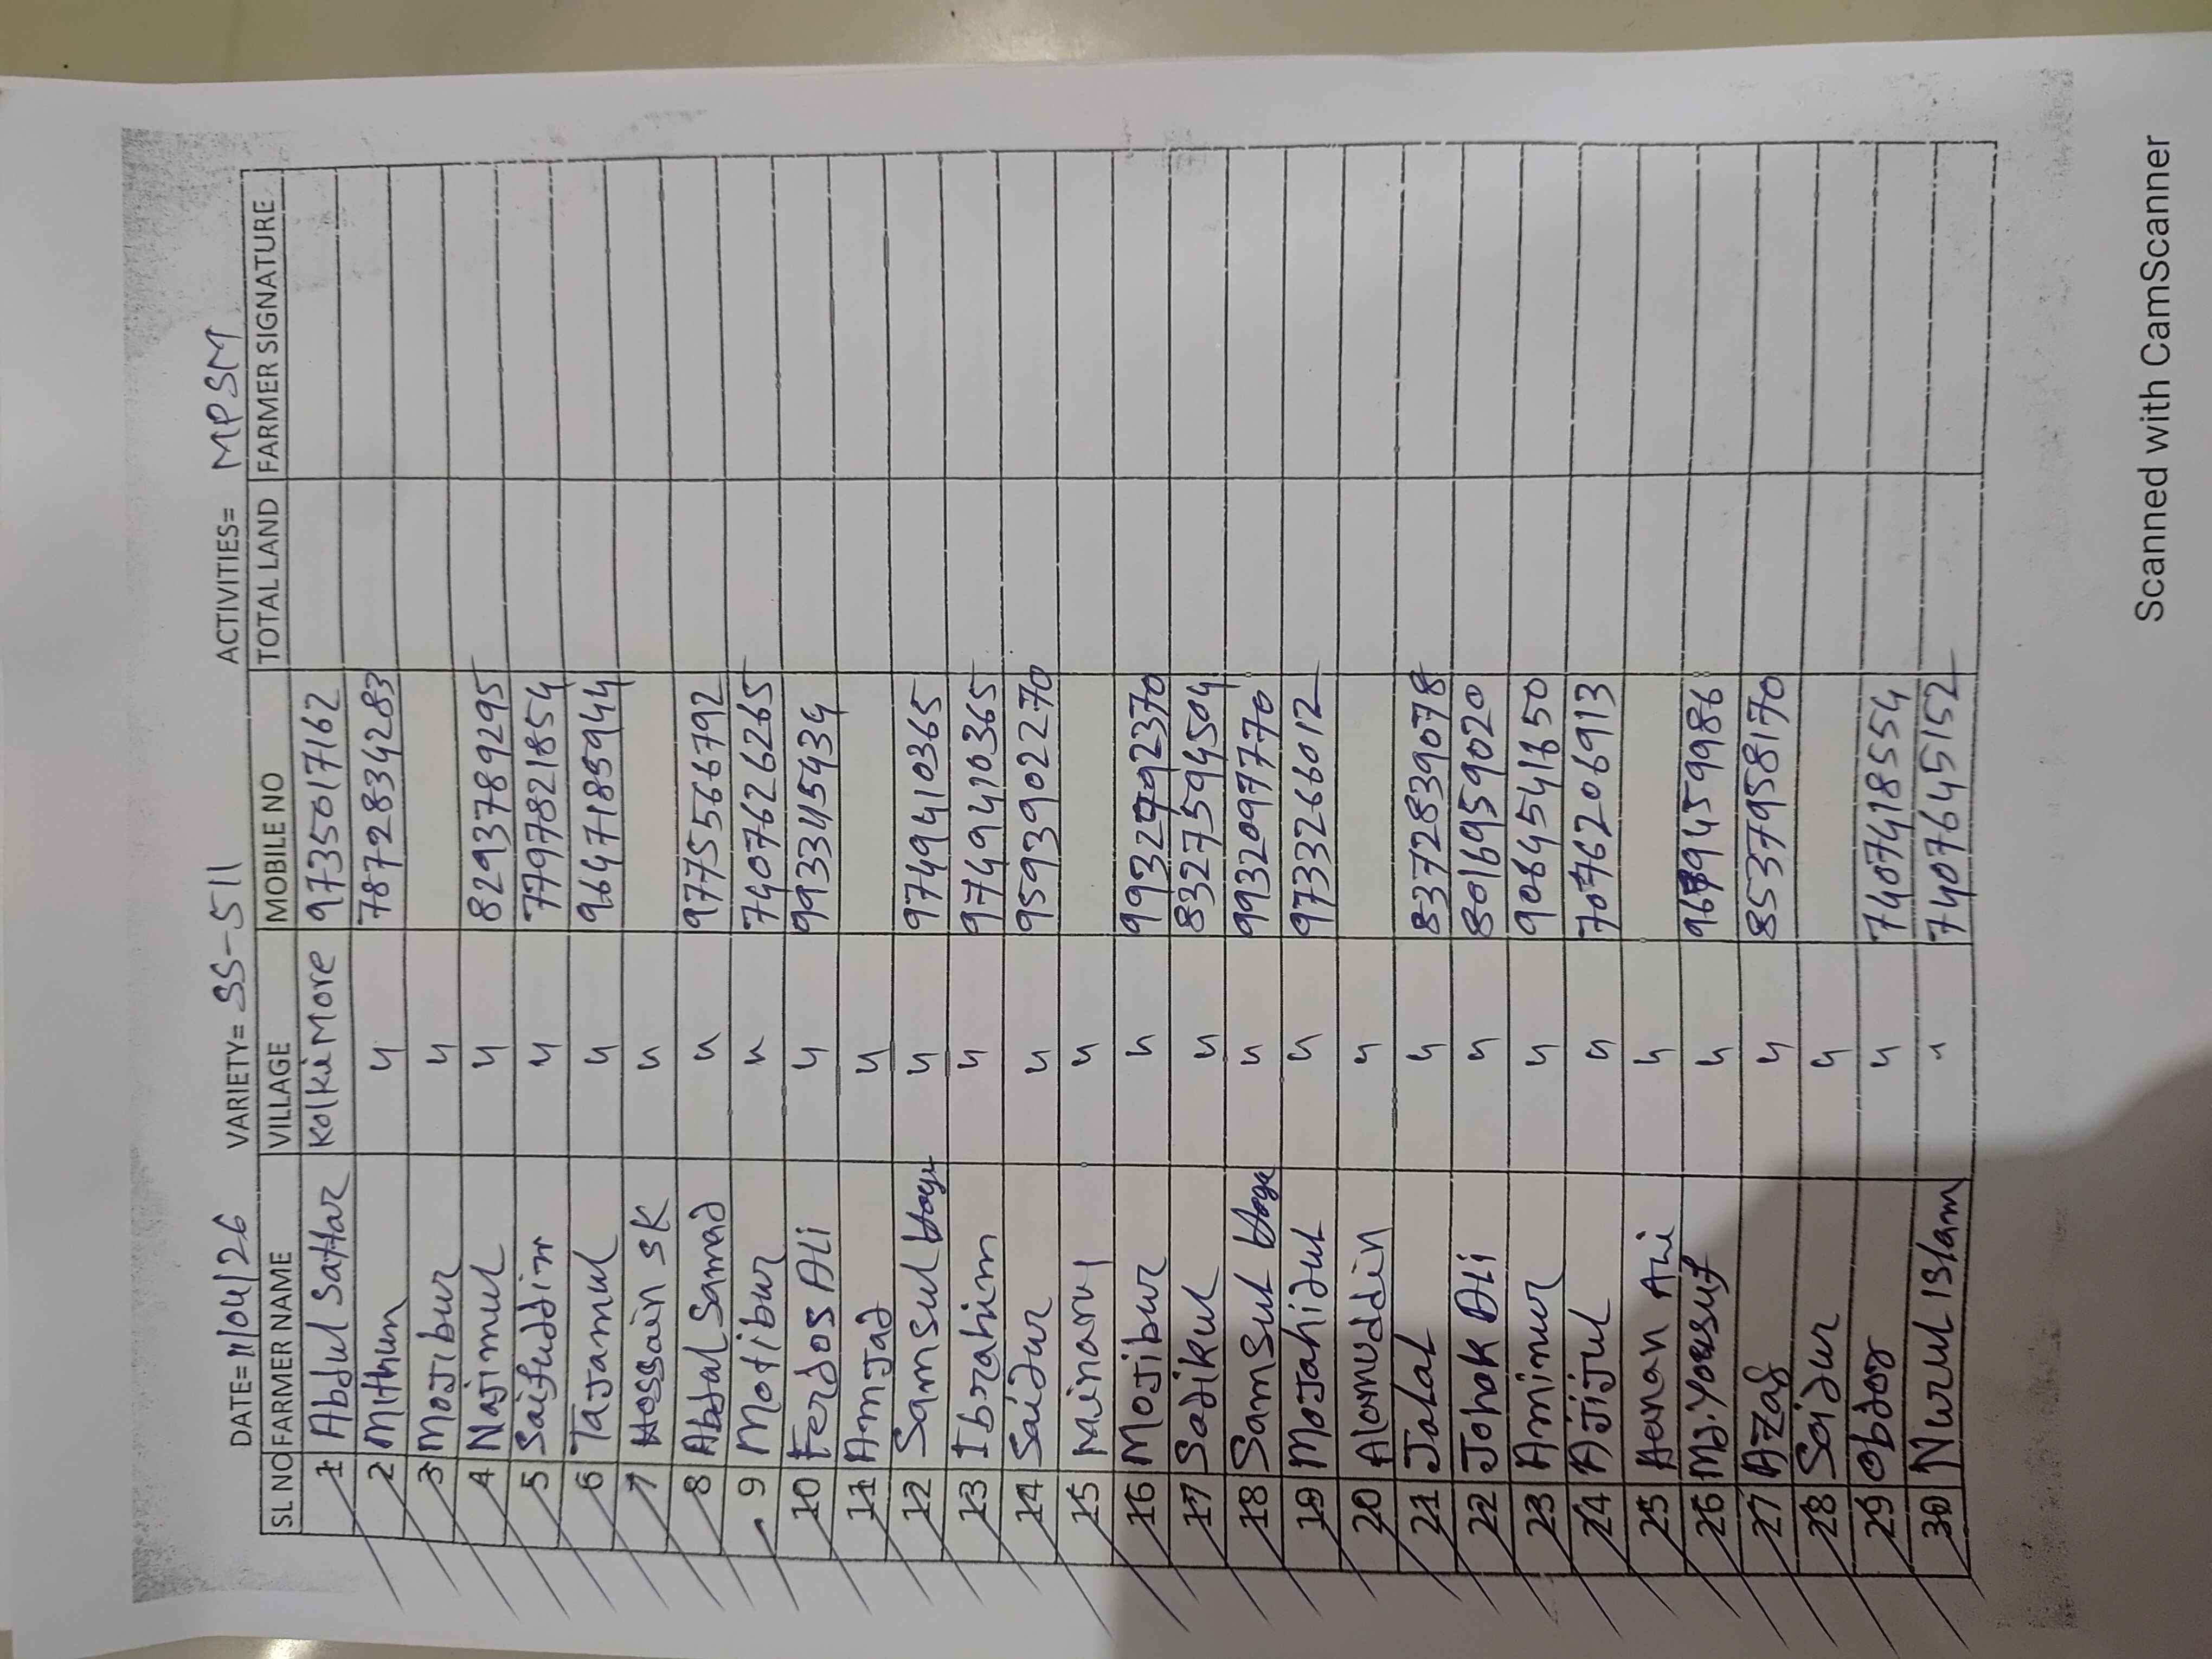 DATE= 11/04/26 VARIETY= SS-511 ACTIVITIES= MPSM
SL NO FARMER NAME VILLAGE MOBILE NO TOTAL LAND FARMER SIGNATURE
1 Abdul Sattar Kolkimore 9735017162
2 Mithun 〃 7872834283
3 Mojibur 〃
4 Najimul 〃 8293789295
5 Saifuddin 〃 7797821854
6 Tajamul 〃 9647185944
7 Hossain SK 〃
8 Abdul Samad 〃 9775566792
9 Motibur 〃 7407626265
10 Ferdos Ali 〃 9933415434
11 Amjad 〃
12 Samsul 〃 9749410365
13 Ibrahim 〃 9749410365
14 Saidur 〃 9593902270
15 〃
16 Mojibur 〃
17 Sadikul 〃 8327594504
18 Samsul 〃 9932097770
19 Mojahidul 〃 9733266012
20 Alamuddin 〃
21 Jalal 〃 8372839078
22 Johak Ali 〃 8016959020
23 Aminur 〃
24 Ajijul 〃 7076206913
25 〃
26 Md. Yousuf 〃
27 Azad 〃 8537958170
28 Saidur 〃
29 Obdor 〃 7407418554
30 Nurul Islam 〃 7407645152
Scanned with CamScanner